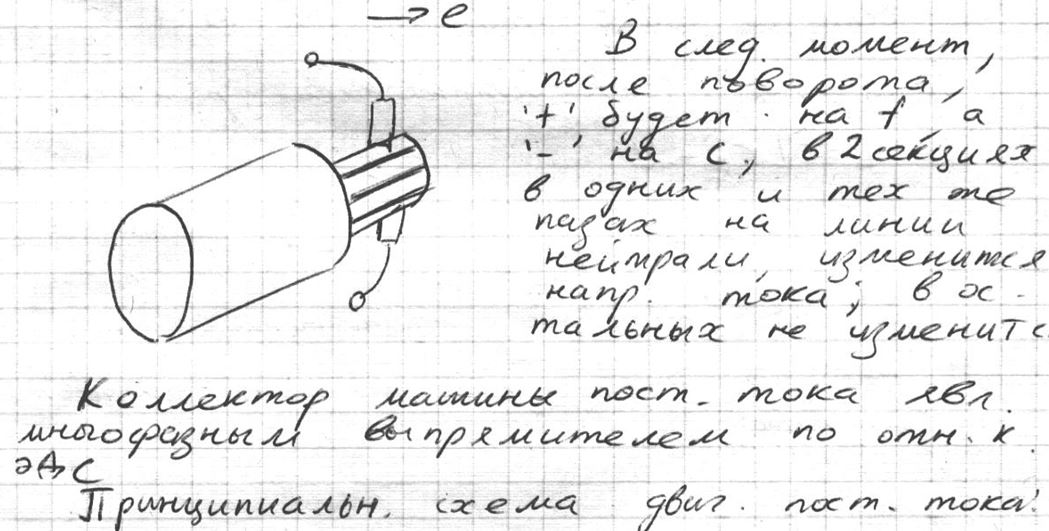 → e
В след. момент,
после поворота,
'+' будет на f, а
'-' на c, в 2 секциях
в одних и тех же
пазах на линии
нейтрали, изменится
напр. тока; в ос-
тальных не изменитс
Коллектор машины пост. тока явл.
многофазным выпрямителем по отн. к
ЭДС
Принципиальн. схема двиг. пост. тока: